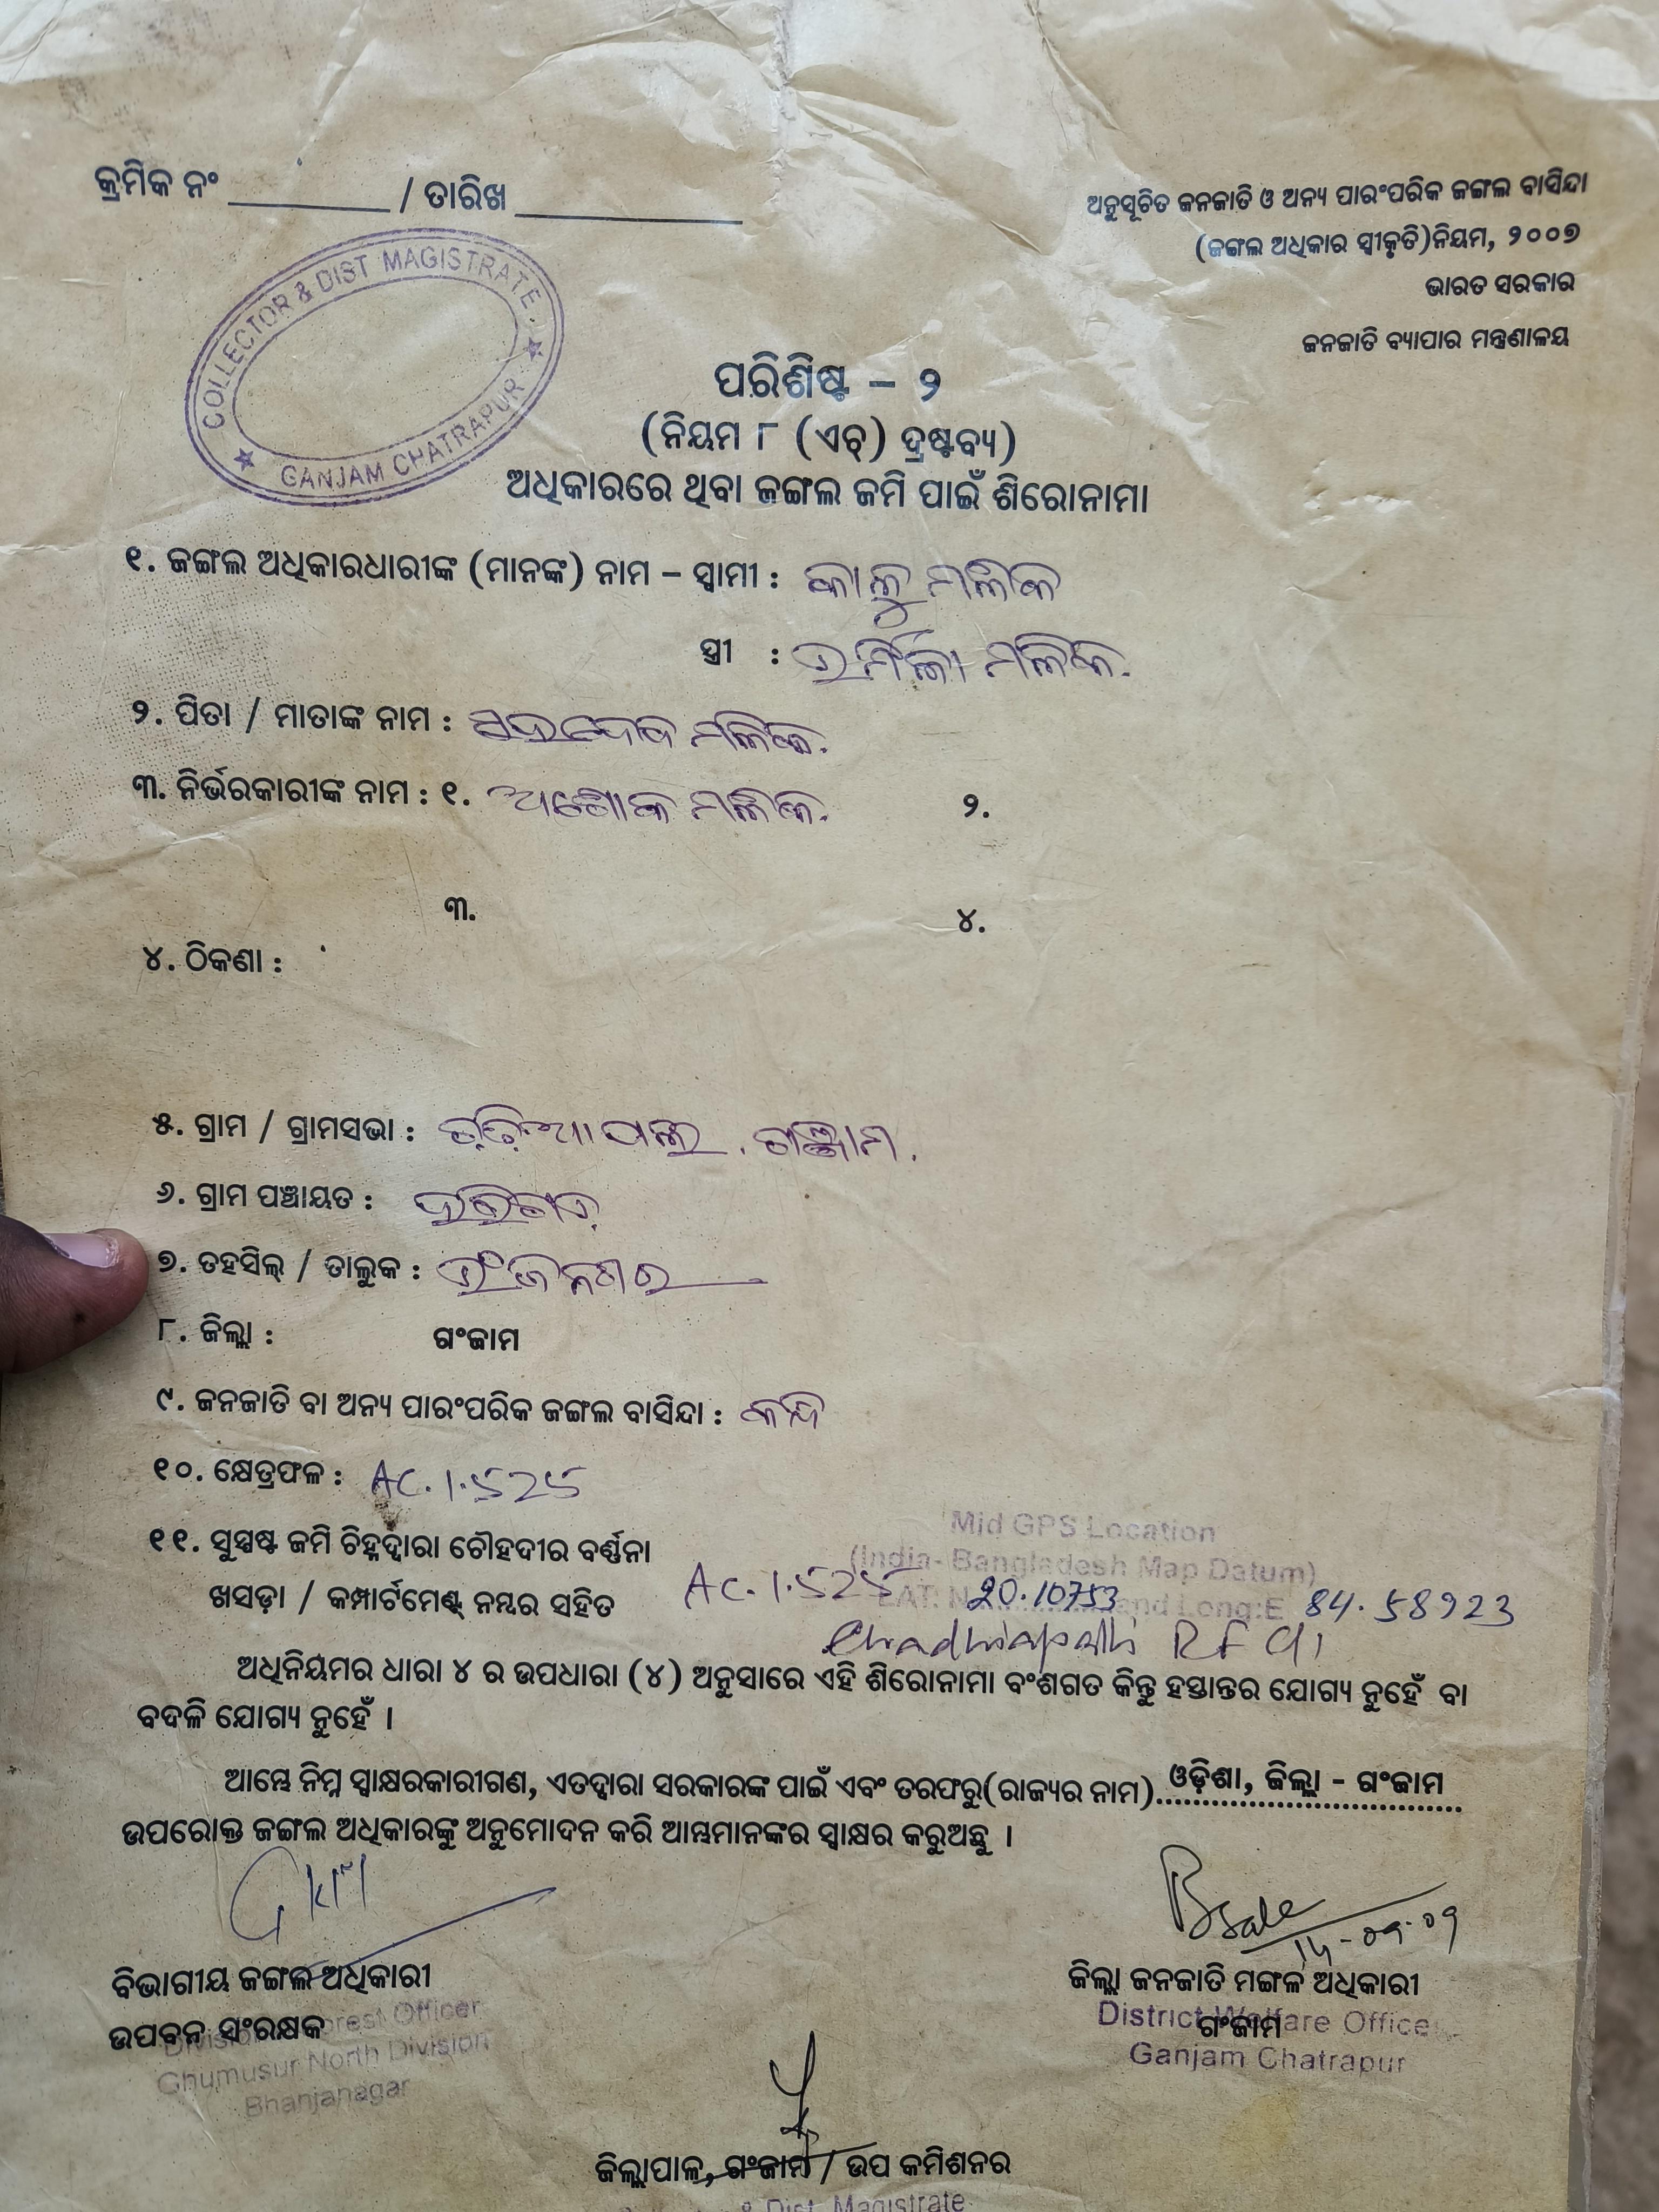 କ୍ରମିକ ନଂ ________ / ତାରିଖ ____________
ଅନୁସୂଚିତ ଜନଜାତି ଓ ଅନ୍ୟ ପାରଂପରିକ ଜଙ୍ଗଲ ବାସିନ୍ଦା
(ଜଙ୍ଗଲ ଅଧିକାର ସ୍ୱୀକୃତି)ନିୟମ, ୨୦୦୭
ଭାରତ ସରକାର
ଜନଜାତି ବ୍ୟାପାର ମନ୍ତ୍ରଣାଳୟ
COLLECTOR & DIST MAGISTRATE.
GANJAM CHATRAPUR
ପରିଶିଷ୍ଟ – ୨
(ନିୟମ ୮ (ଏଚ୍) ଦ୍ରଷ୍ଟବ୍ୟ)
ଅଧିକାରରେ ଥିବା ଜଙ୍ଗଲ ଜମି ପାଇଁ ଶିରୋନାମା
୧. ଜଙ୍ଗଲ ଅଧିକାରଧାରୀଙ୍କ (ମାନଙ୍କ) ନାମ – ସ୍ୱାମୀ : କାଳୁ ମଲିକ
ସ୍ତ୍ରୀ : ଉର୍ମିଳା ମଲିକ.
୨. ପିତା / ମାତାଙ୍କ ନାମ : ମଲିକ.
୩. ନିର୍ଭରକାରୀଙ୍କ ନାମ : ୧. ଅଶୋକ ମଲିକ. ୨.
୩. ୪.
୪. ଠିକଣା :
୫. ଗ୍ରାମ / ଗ୍ରାମସଭା : ଗଞ୍ଜାମ.
୬. ଗ୍ରାମ ପଞ୍ଚାୟତ :
୭. ତହସିଲ୍ / ତାଲୁକ : ଭଂଜନଗର
୮. ଜିଲ୍ଲା : ଗଂଜାମ
୯. ଜନଜାତି ବା ଅନ୍ୟ ପାରଂପରିକ ଜଙ୍ଗଲ ବାସିନ୍ଦା : କନ୍ଧ
୧୦. କ୍ଷେତ୍ରଫଳ : AC. 1.525
୧୧. ସୁସ୍ପଷ୍ଟ ଜମି ଚିହ୍ନଦ୍ୱାରା ଚୌହଦୀର ବର୍ଣ୍ଣନା
Mid GPS Location
(India- Bangladesh Map Datum)
ଖସଡ଼ା / କମ୍ପାର୍ଟମେଣ୍ଟ୍ ନମ୍ବର ସହିତ AC. 1.525 LAT: N 20.10753 and Long:E 84.58923
RF
ଅଧିନିୟମର ଧାରା ୪ ର ଉପଧାରା (୪) ଅନୁସାରେ ଏହି ଶିରୋନାମା ବଂଶଗତ କିନ୍ତୁ ହସ୍ତାନ୍ତର ଯୋଗ୍ୟ ନୁହେଁ ବା
ବଦଳି ଯୋଗ୍ୟ ନୁହେଁ ।
ଆମ୍ଭେ ନିମ୍ନ ସ୍ୱାକ୍ଷରକାରୀଗଣ, ଏତଦ୍ୱାରା ସରକାରଙ୍କ ପାଇଁ ଏବଂ ତରଫରୁ(ରାଜ୍ୟର ନାମ) ଓଡ଼ିଶା, ଜିଲ୍ଲା - ଗଂଜାମ
ଉପରୋକ୍ତ ଜଙ୍ଗଲ ଅଧିକାରଙ୍କୁ ଅନୁମୋଦନ କରି ଆମ୍ଭମାନଙ୍କର ସ୍ୱାକ୍ଷର କରୁଅଛୁ ।
ବିଭାଗୀୟ ଜଙ୍ଗଲ ଅଧିକାରୀ
ଉପବନ ସଂରକ୍ଷକ
Divisional Forest Officer
Ghumusur North Division
Bhanjanagar
ଜିଲ୍ଲା ଜନଜାତି ମଙ୍ଗଳ ଅଧିକାରୀ
ଗଂଜାମ
District Welfare Office
Ganjam Chatrapur
ଜିଲ୍ଲାପାଳ, ଗଂଜାମ / ଉପ କମିଶନର
& Dist. Magistrate